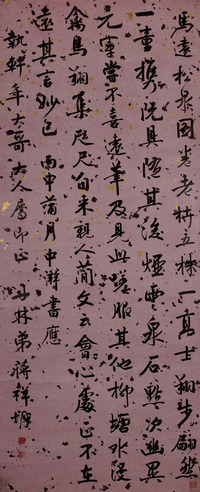 馬遠松泉圖卷老幹五株一高士翔步翩然
一童携阮具隨其後煙雲泉石點次幽異
元董嘗不喜遠筆及見此蹟服其他柳塘水隄
禽鳥翔集咫尺自來親人簡文云會心處正不在
遠其言妙已 丙申蒲月中澣書應
執輝年大哥大人屬即正 丹林弟蔣祥墀